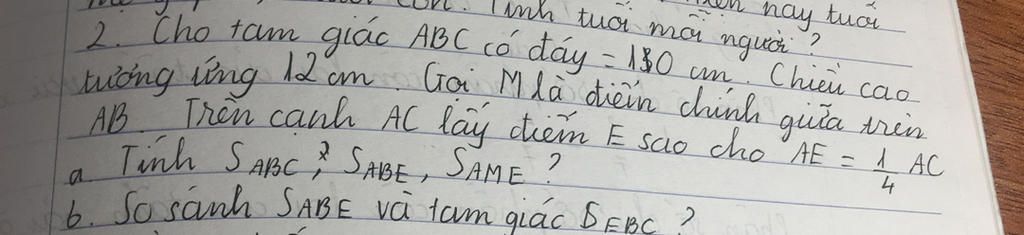 con. Tính tuổi mỗi người?
nay tuổi
2. Cho tam giác ABC có đáy = 180 cm. Chiều cao
tương ứng 12 cm. Gọi M là điểm chính giữa trên
AB. Trên cạnh AC lấy điểm E sao cho AE = 1/4 AC
a. Tính SABC; SABE, SAME?
b. So sánh SABE và tam giác SEBC?